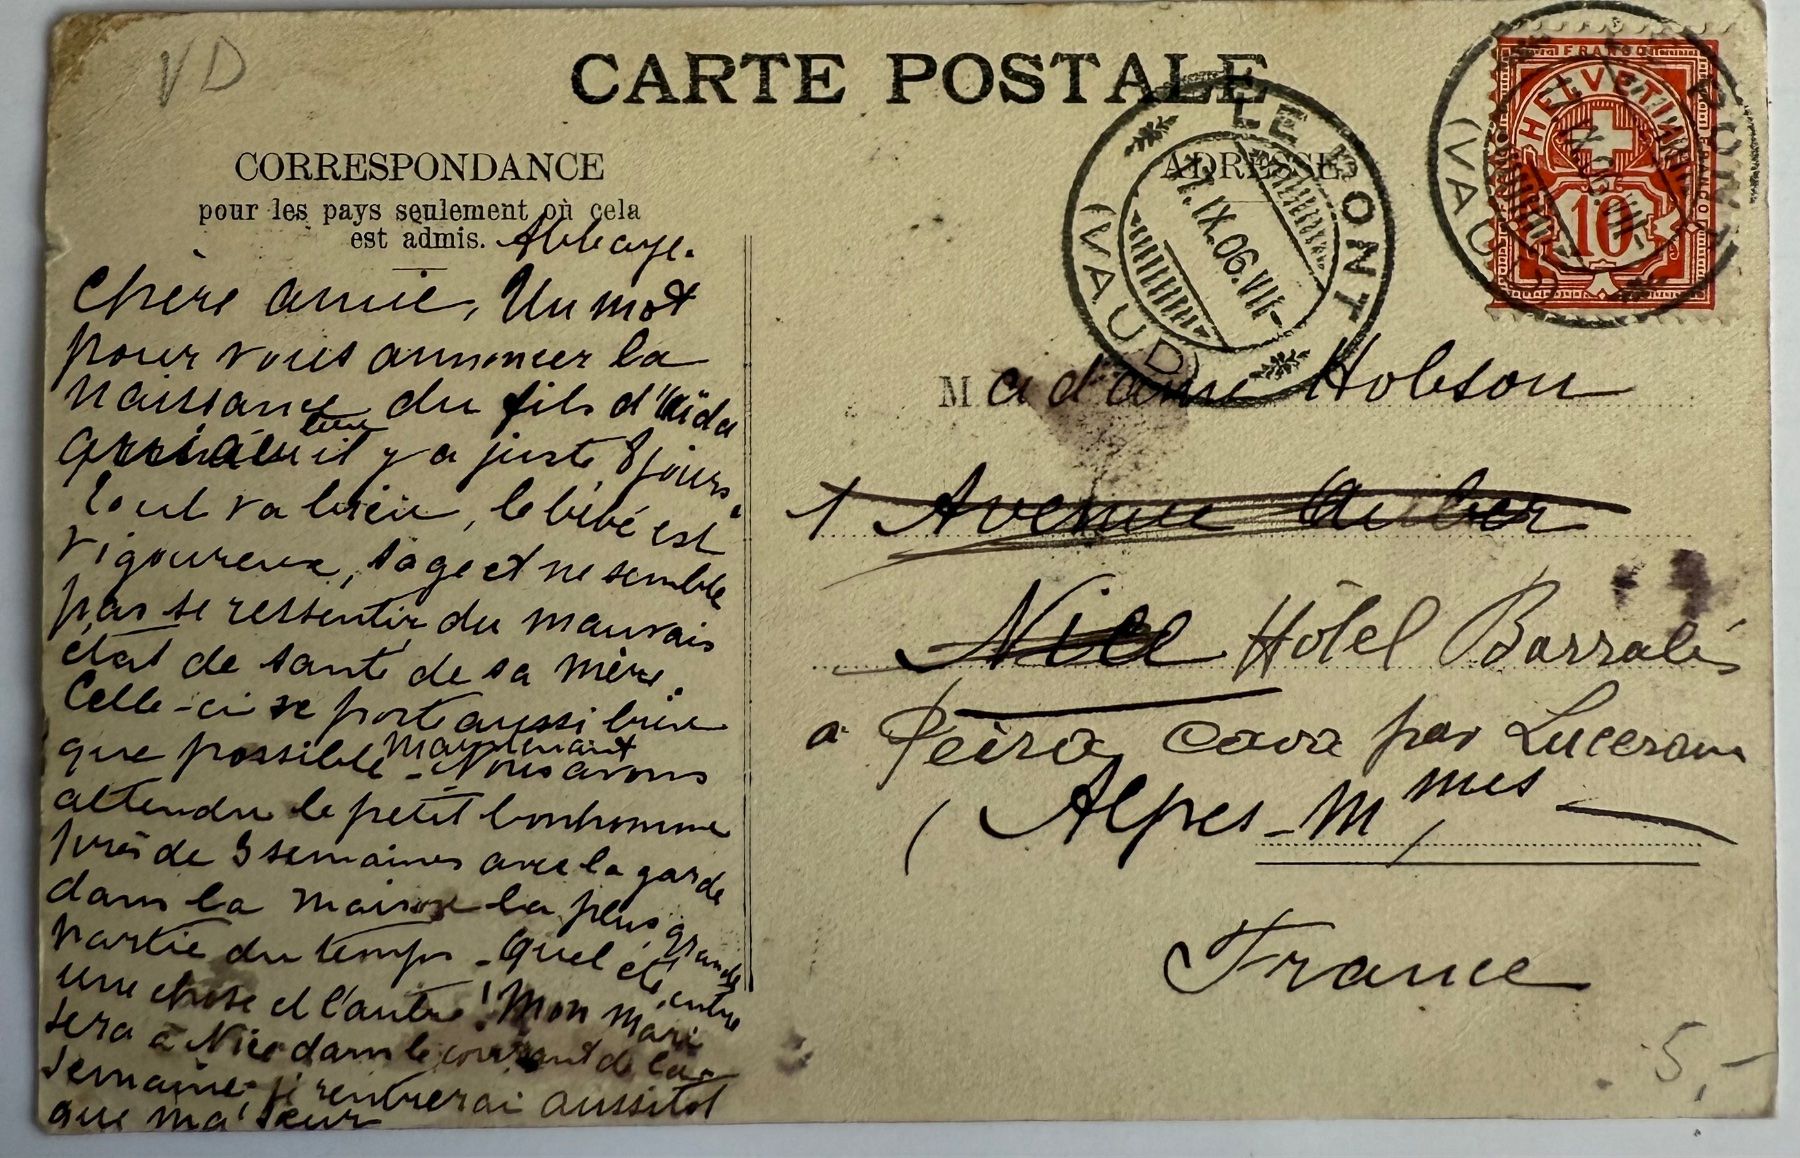 VD
CARTE POSTALE
CORRESPONDANCE
pour les pays seulement où cela
est admis.
ADRESSE
LE PONT
(VAUD)
IX.06.VII-
FRANCO
HELVETIA
10
LE PONT
(VAUD)
Abbaye.
Chère amie, Un mot
pour vous annoncer la
naissance du fils d'Aïda
il y a juste 8 jours.
Tout va bien, le bébé est
vigoureux, sage et ne semble
pas se ressentir du mauvais
état de santé de sa mère.
Celle-ci se porte aussi bien
que possible maintenant - Nous avons
attendu le petit bonhomme
près de 3 semaines avec la garde
dans la maison la plus grande
partie du temps - Quel été, entre
une chose et l'autre! Mon mari
sera à Nice dans le courant de la
semaine - je rentrerai aussitôt
que ma sœur
Madame Hobson
1 Avenue Auber
Nice Hôtel Barralis
à Peira Cava par Luceram
(Alpes-Mmes
France
5,-